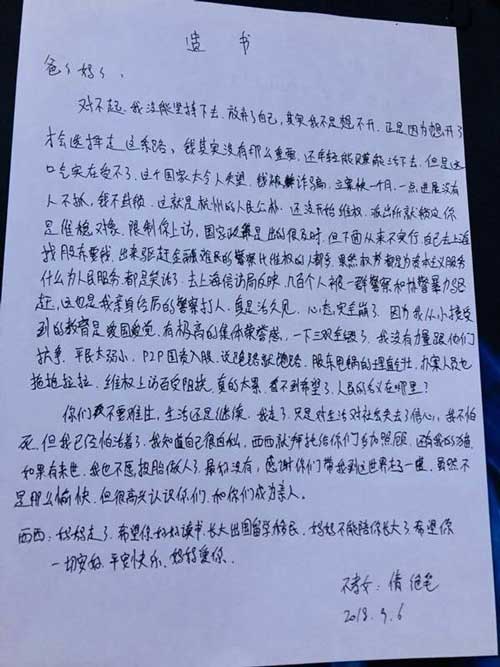 遗书
爸爸妈妈、
对不起、我没能坚持下去、放弃了自己、其实我不是想不开、正是因为想开了
才会选择走这条路、钱其实没有那么重要、还年轻能赚能活下去、但是这
口气实在受不了、这个国家太令人失望、钱被诈骗、立案快一个月、一点进展没有
人不抓、钱不截、这就是杭州的人民公仆、还没开始维权、派出所就稳定你
是维稳对象、限制你上访、国家政策是出的很及时、但下面从来不实行、自己去上海
找股东要钱、出来驱赶金融难民的警察比维权的人都多、果然权都是为资本主义服务
什么为人民服务、都是笑话了、去上海信访局反映、几百个人被一群警察和协警暴力驱
赶、这也是我亲身经历的警察打人、真是活久见、心态完全崩了、因为我从小接受
到的教育是爱国爱党、有极高的集体荣誉感、一下三观全塌了、我没有力量跟他们
抗衡、平民太弱小、P2P国资入股、说跑路就跑路、股东甩锅的理直气壮、办案人员也
拖拖拉拉、维权上访百受阻挠、真的太累、看不到希望了、人民的名义在哪里?
你们不要难过、生活还是继续、我走了、只是对生活对社会失去了信心、我不怕
死、但我已经怕活着了、我知道自己很自私、西西就拜托给你们多加照顾、还有我的
如果有来世、我也不愿投胎做人了、最后没有、感谢你们带我到这世界走了一遭、虽然不
是那么愉快、但很高兴认识你们、和你们成为亲人。
西西:妈妈走了、希望你好好读书、长大出国留学移民、妈妈不能陪你长大了、希望你
一切安好、平安快乐、妈妈爱你、
不孝女:倩 绝笔
2018.9.6